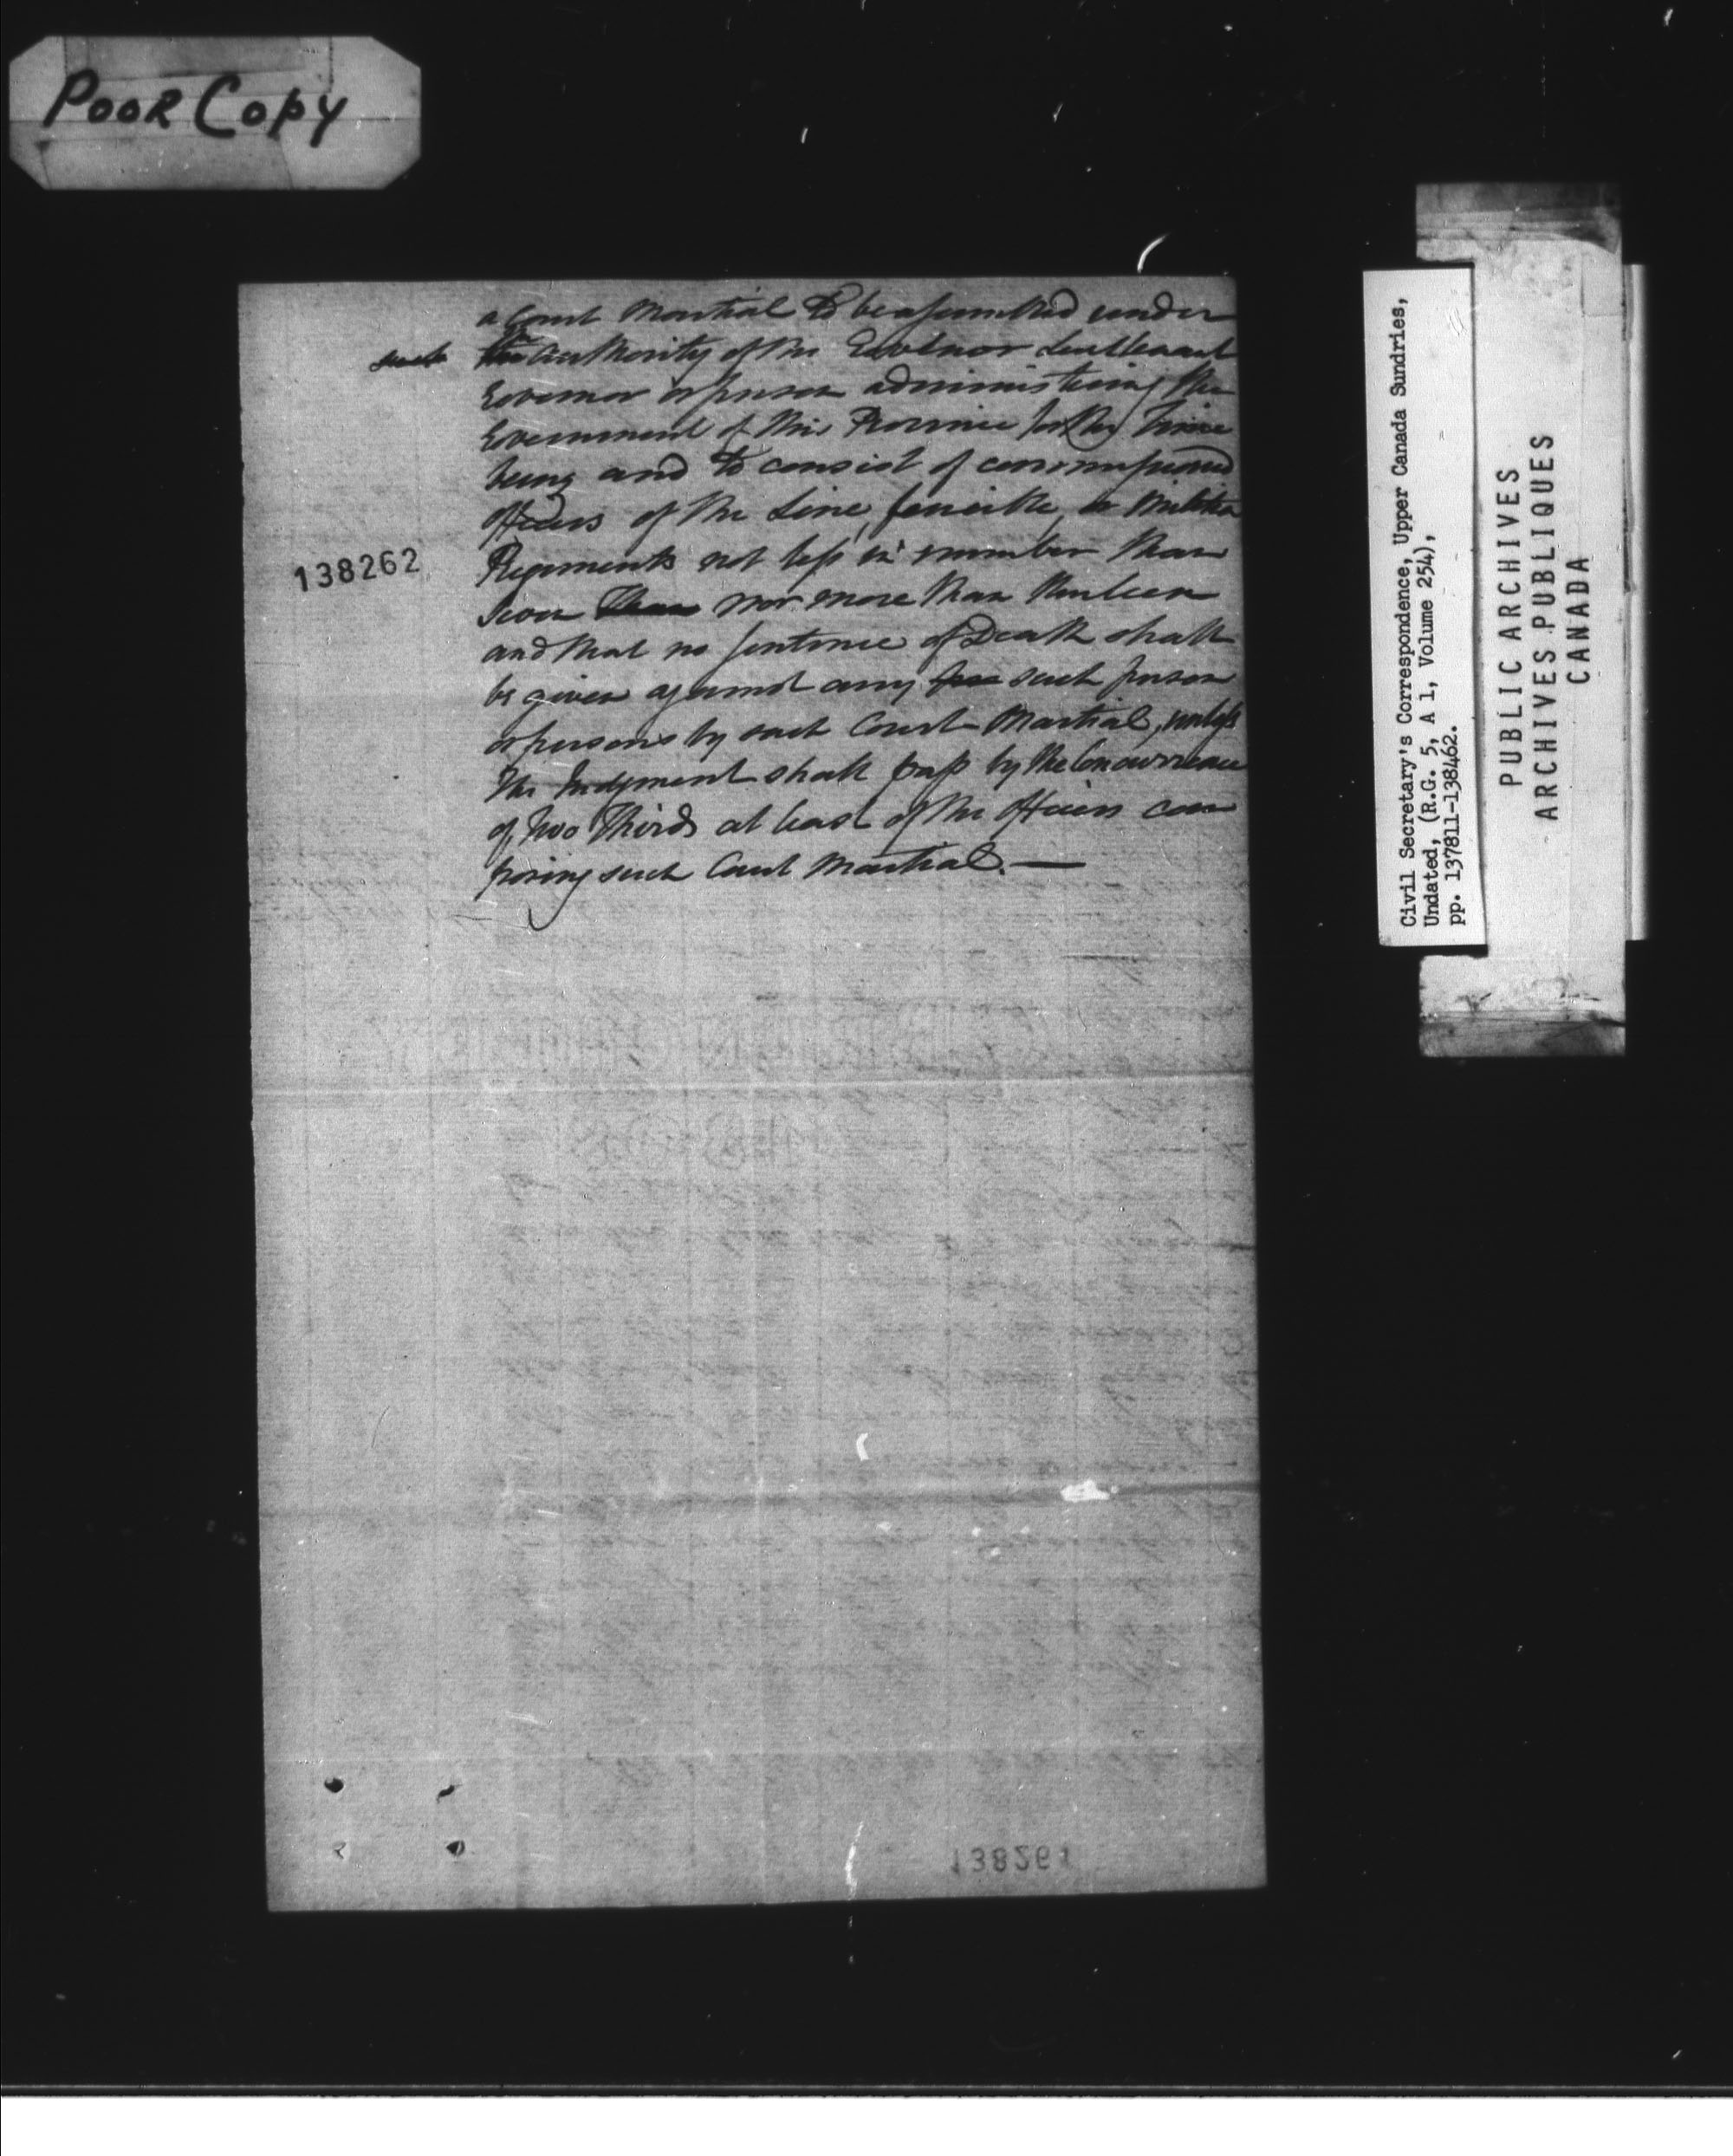 Poor Copy
a Court Martial to be assembled under
such the authority of the Governor Lieutenant
Governor or person administering the
Government of this Province for the Time
being and to consist of commissioned
officers of the Line, fencible, or Militia
Regiments not less in number than
138262
seven than nor more than thirteen
and that no sentence of Death shall
be given against any per such person
or persons by such Court Martial, unless
the Judgment shall pass by the Concurrence
of two Thirds at least of the Officers com
posing such Court Martial. —
138261
Civil Secretary's Correspondence, Upper Canada Sundries,
Undated, (R.G. 5, A 1, Volume 254),
pp. 137811-138462.
PUBLIC ARCHIVES
ARCHIVES PUBLIQUES
CANADA